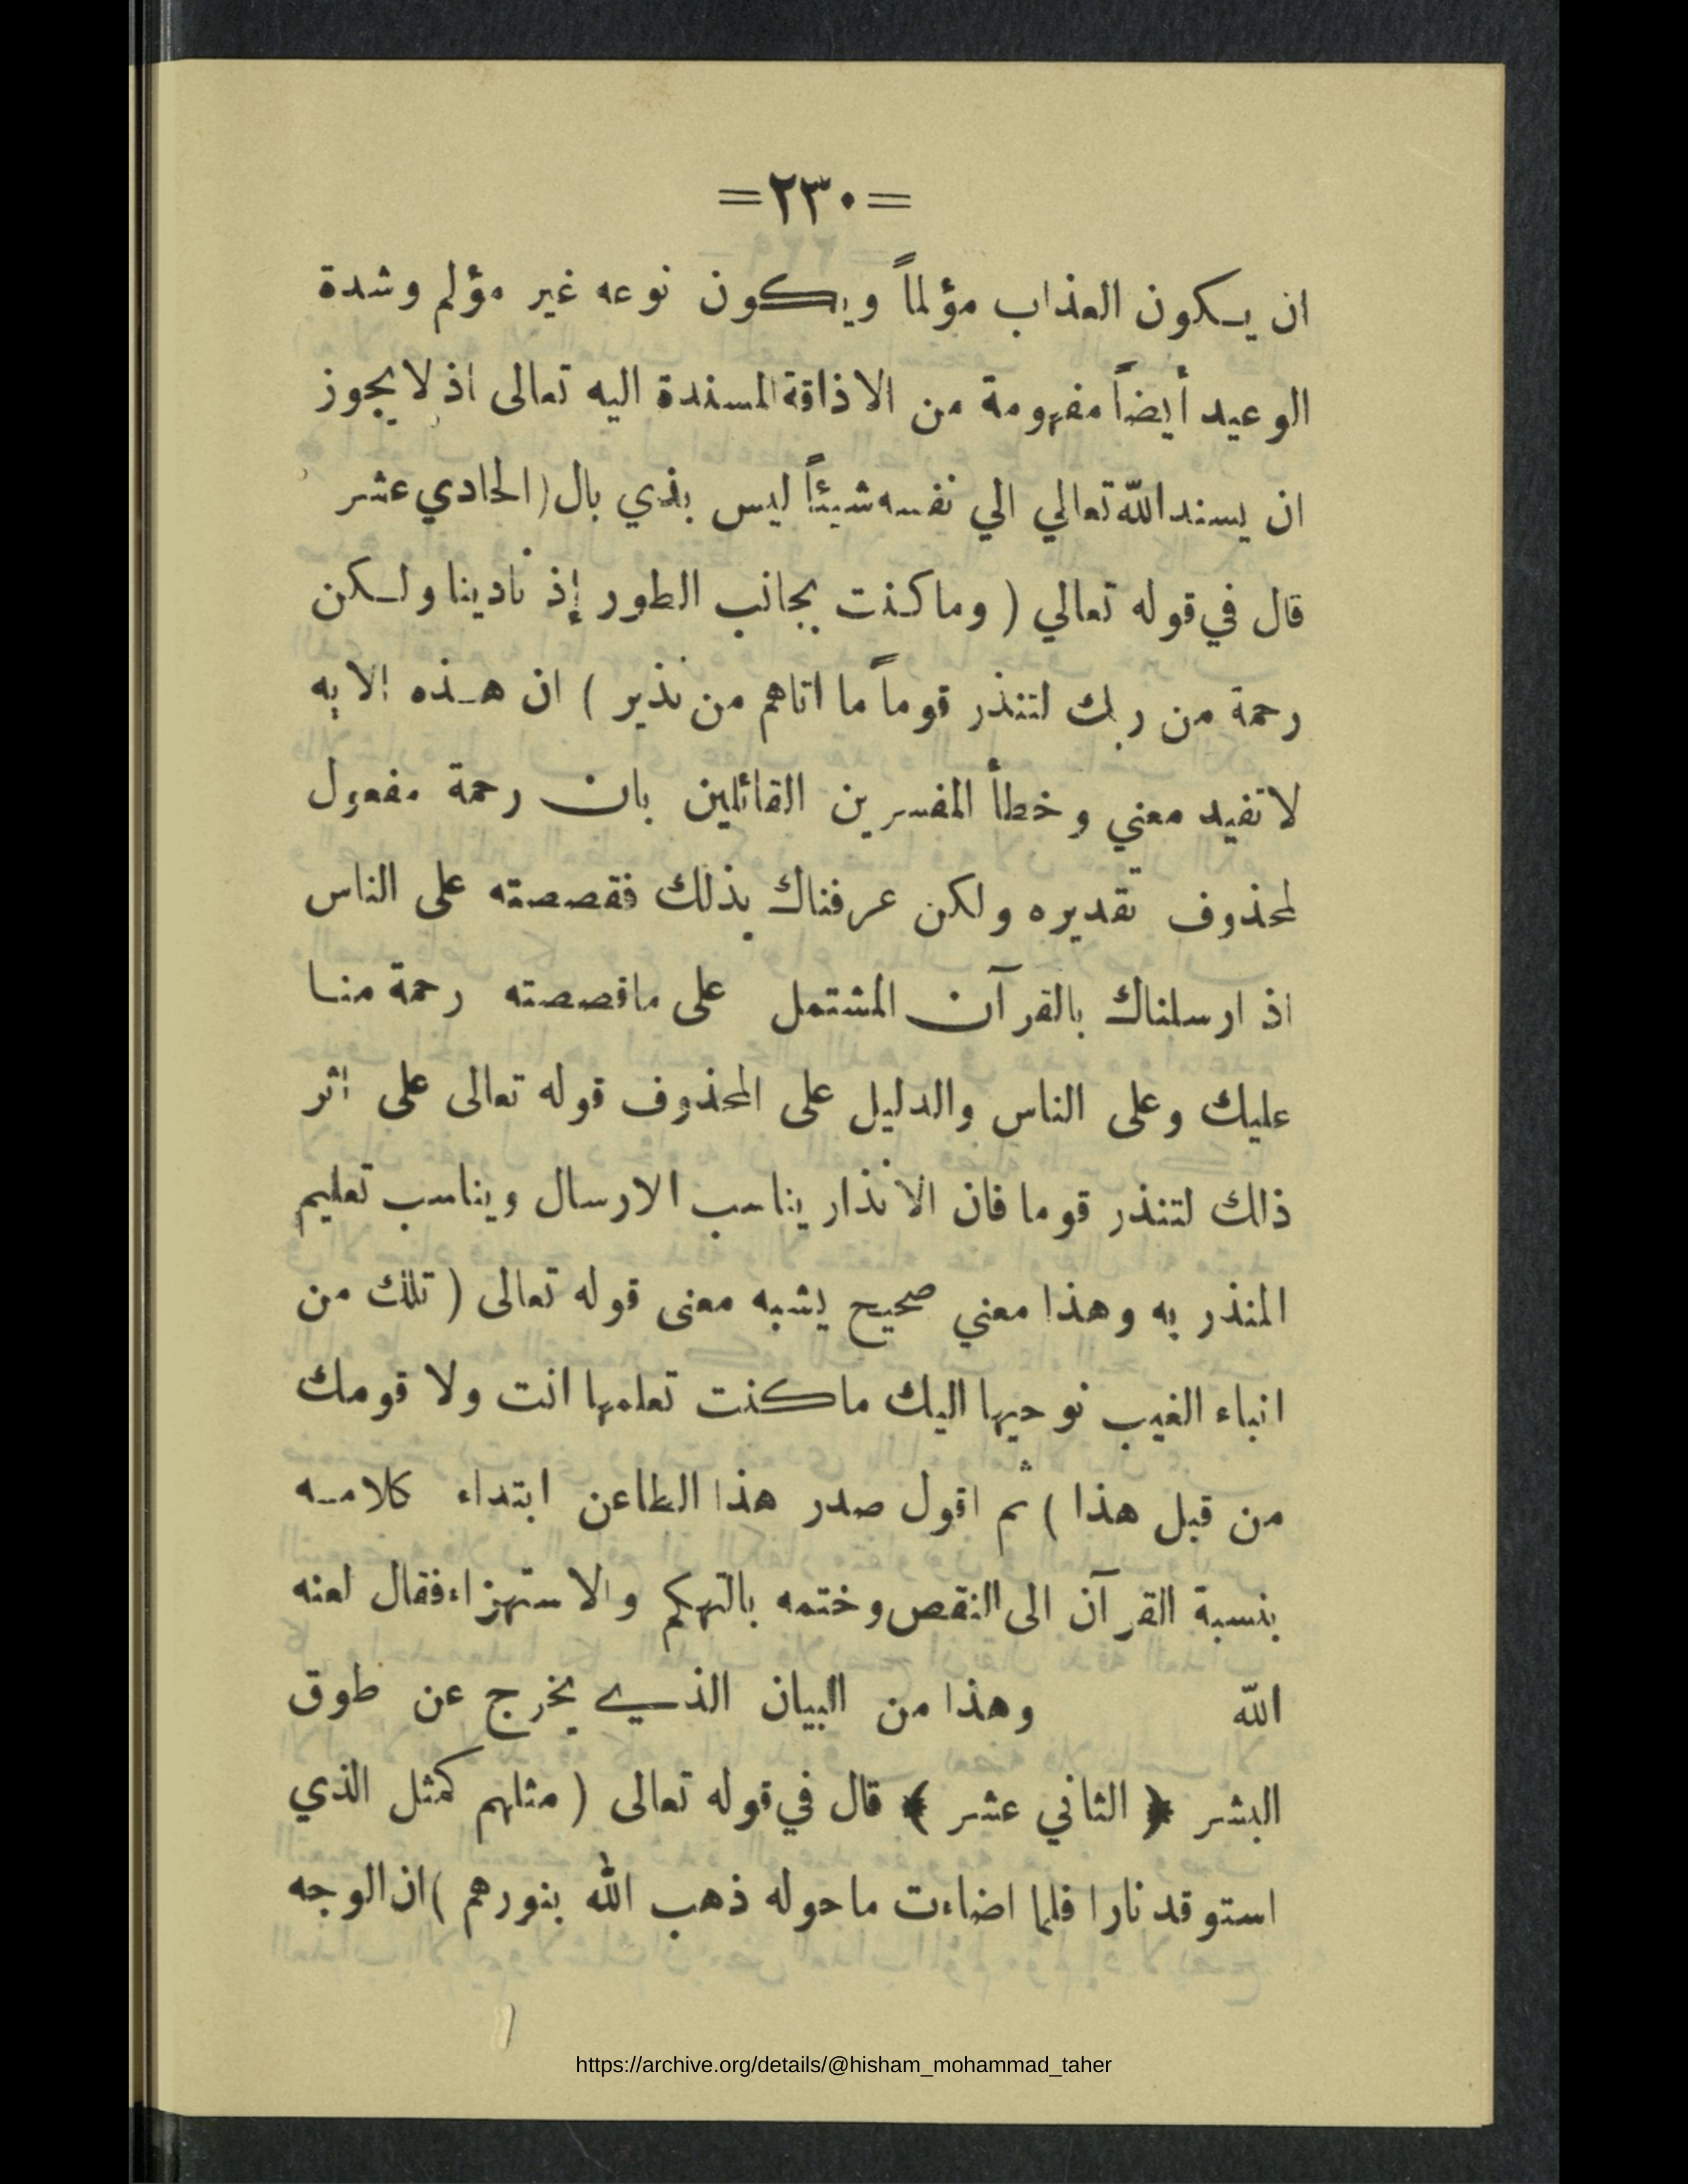 =٢٣٠=
ان يكون العذاب مؤلماً ويكون نوعه غير مؤلم وشدة
الوعيد أيضاً مفهومة من الاذاقة المسندة اليه تعالى اذ لا يجوز
ان يسند الله تعالي الي نفسه شيئاً ليس بذي بال (الحادي عشر
قال في قوله تعالي ( وما كنت بجانب الطور إذ نادينا ولكن
رحمة من ربك لتنذر قوماً ما اتاهم من نذير ) ان هذه الايه
لا تفيد معني وخطأ المفسرين القائلين بان رحمة مفعول
لمحذوف تقديره ولكن عرفناك بذلك فقصصته على الناس
اذ ارسلناك بالقرآن المشتمل على ماقصصته رحمة منا
عليك وعلى الناس والدليل على المحذوف قوله تعالى على اثر
ذلك لتنذر قوما فان الانذار يناسب الارسال ويناسب تعليم
المنذر به وهذا معني صحيح يشبه معنى قوله تعالى ( تلك من
انباء الغيب نوحيها اليك ماكنت تعلمها انت ولا قومك
من قبل هذا ) ثم اقول صدر هذا الطاعن ابتداء كلامه
بنسبة القرآن الى النقص وختمه بالتهكم والاستهزاء فقال لعنه
الله وهذا من البيان الذي يخرج عن طوق
البشر ﴿ الثاني عشر ﴾ قال في قوله تعالى ( مثلهم كمثل الذي
استوقد نارا فلما اضاءت ماحوله ذهب الله بنورهم ) ان الوجه
https://archive.org/details/@hisham_mohammad_taher